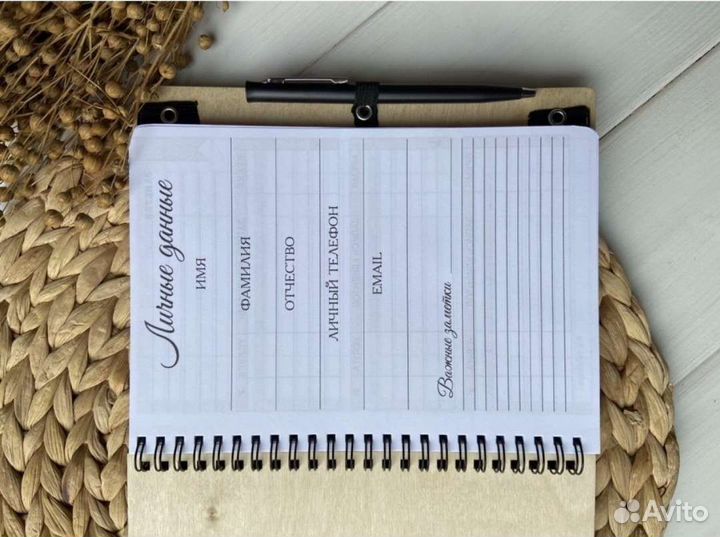 Личные данные
ИМЯ
ФАМИЛИЯ
ОТЧЕСТВО
ЛИЧНЫЙ ТЕЛЕФОН
EMAIL
Важные заметки
Avito